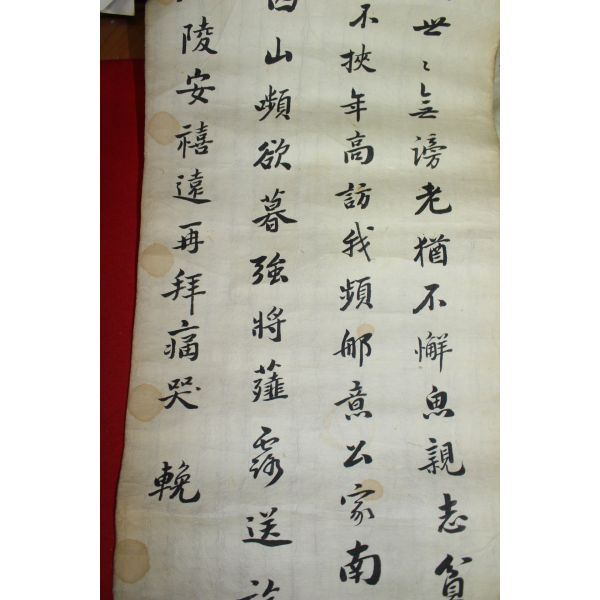 世〻無謗老猶不懈魚親志貧
不挾年高訪我頻那意公家南
山嚬欲暮強將薤露送
陵安禧遠再拜痛哭 輓